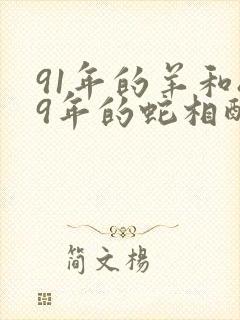 91年的羊和
9年的蛇相
简文楊